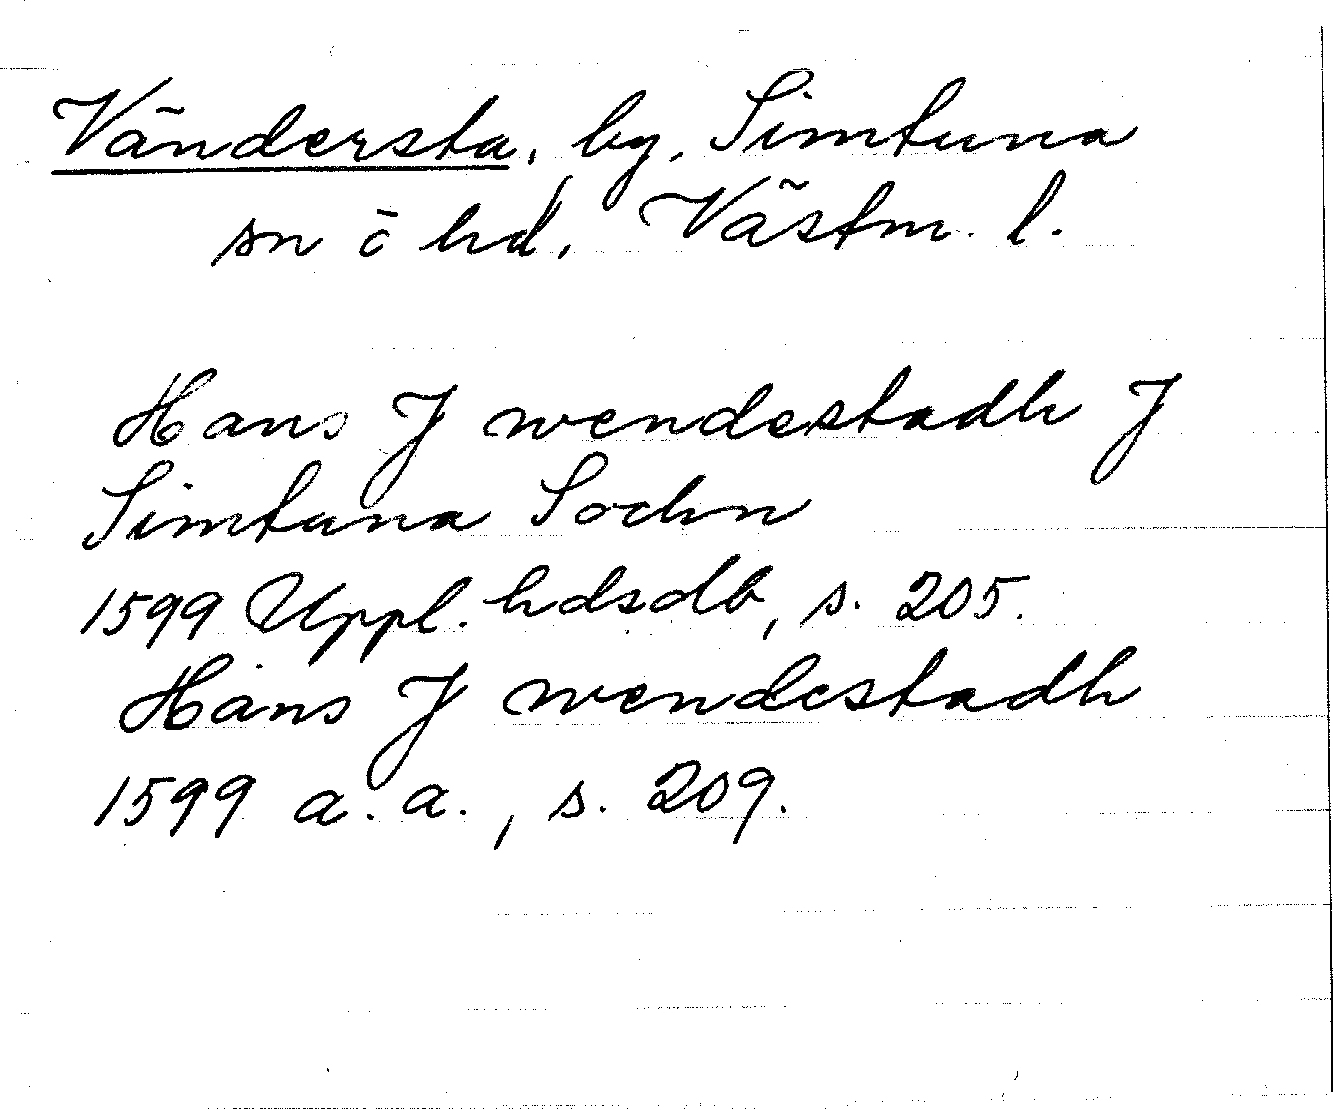 Vändersta, by, Simtuna
sn o hd, Västm. l.
Hans J wendestadh J
Simtuna Sochn
1599 Uppl. hdsdb, s. 205.
Hans J wendestadh
1599 a. a., s. 209.